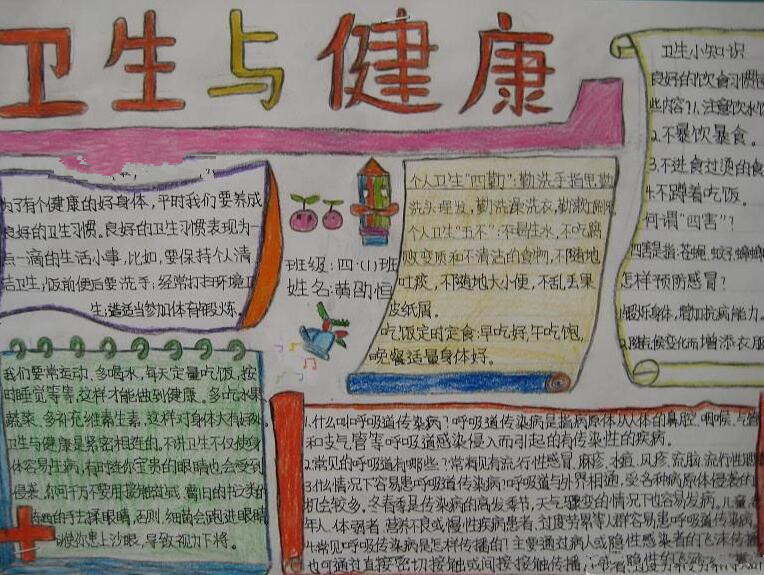 卫生与健康
为了有个健康的好身体,平时我们要养成
良好的卫生习惯。良好的卫生习惯表现为一
点一滴的生活小事,比如,要保持个人清
洁卫生,饭前便后要洗手;经常打扫环境卫
生;适当参加体育锻炼。
班级:四·(1)班
姓名:黄劭恒
个人卫生"四勤":勤洗手指甲,勤
洗头理发,勤洗澡洗衣,勤漱
个人卫生"五不":不喝生水,不吃腐
败变质和不清洁的食物,不随地
吐痰,不随地大小便,不乱丢果
皮纸屑。
吃饭定时定食:早吃好,午吃饱,
晚餐适量身体好。
卫生小知识
良好的饮食习惯包
些内容?1、注意饮水
2.不暴饮暴食。
3.不进食过烫的食
4.不蹲着吃饭。
何谓"四害"?
四害是指:苍蝇、蚊子、蟑螂
怎样预防感冒?
1.锻炼身体,增加抗病能力。
2.随气候变化而增添衣服
我们要常运动、多喝水,每天定量吃饭,按
时睡觉等等,这样才能做到健康。多吃水果
蔬菜、多补充维生素,这样对身体大有好处。
卫生与健康是紧密相连的。不讲卫生不仅使身
体容易生病,有时连你宝贵的眼睛也会受到
侵袭,你可千万不要用接触过
的手去揉眼睛,否则,细菌会跑进眼睛
使你患上沙眼,导致视力下将。
1.什么叫呼吸道传染病?呼吸道传染病是指病原体从人体的鼻腔、咽喉、气管
和支气管等呼吸道感染侵入而引起的有传染性的疾病。
2.常见的呼吸道有哪些?常见有流行性感冒、麻疹、水痘、风疹、流脑、流行性腮
3.什么情况下容易患呼吸道传染病?呼吸道与外界相通,受各种病原体侵袭的
机会较多。冬春季是传染病的高发季节,天气骤变的情况下也容易发病。儿童、老
年人、体弱者、营养不良或慢性疾病患者、过度劳累等人群容易患呼吸道传染病。
4.常见呼吸传染病是怎样传播的?主要通过病人或隐性感染者的飞沫传播
也可通过直接密切接触或间接接触传播